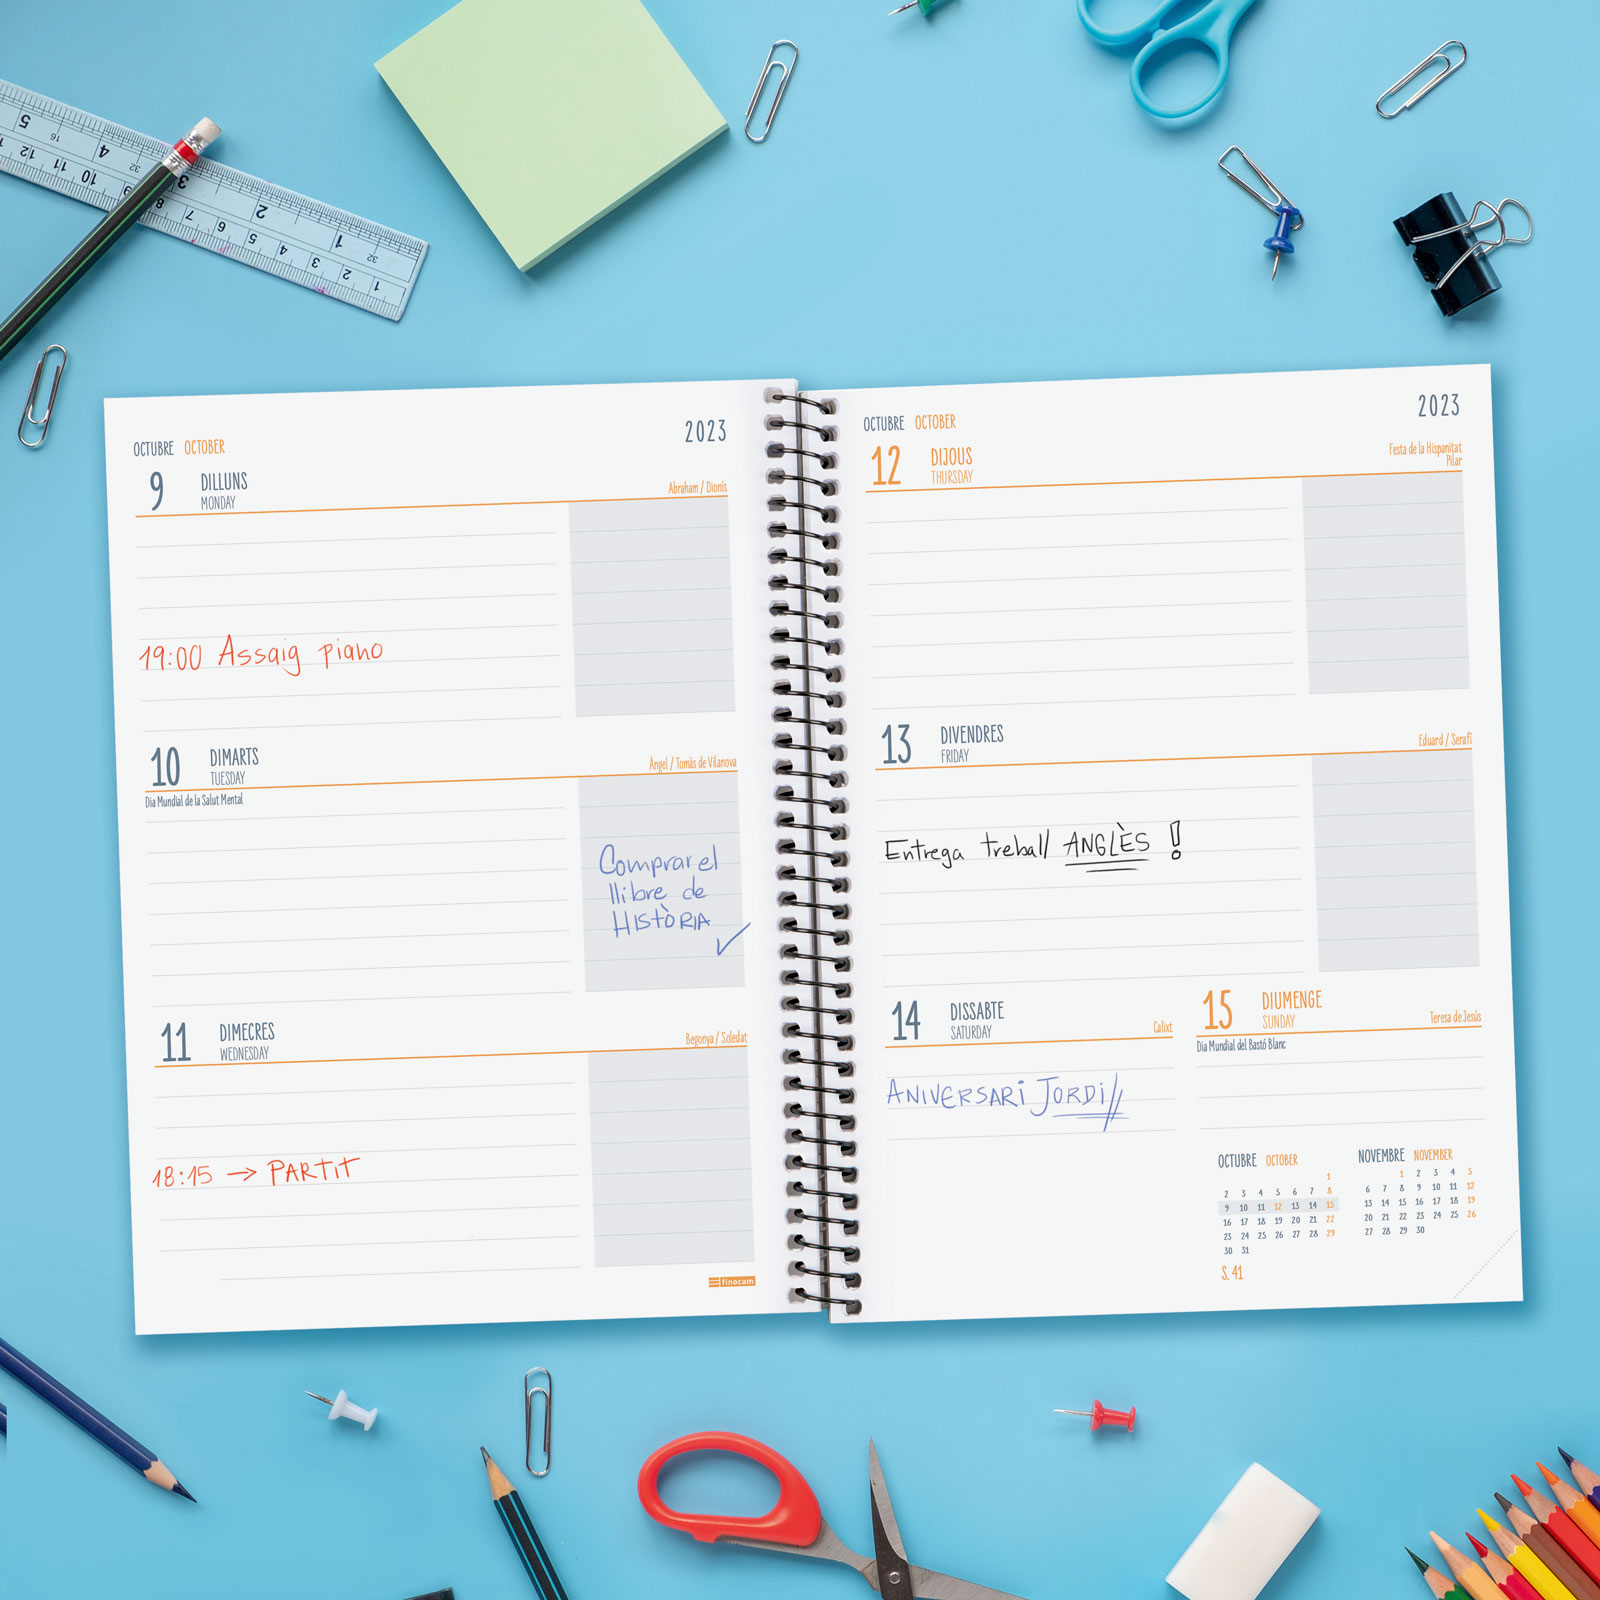 OCTUBRE OCTOBER 2023
9 DILLUNS
MONDAY
Abraham / Dionís
19:00 Assaig piano
10 DIMARTS
TUESDAY
Àngel / Tomàs de Vilanova
Dia Mundial de la Salut Mental
Comprar el
llibre de
HISTÒRIA
11 DIMECRES
WEDNESDAY
Begonya / Soledat
18:15 → PARTIT
finocam
OCTUBRE OCTOBER 2023
12 DIJOUS
THURSDAY
Festa de la Hispanitat
Pilar
13 DIVENDRES
FRIDAY
Eduard / Serafí
Entrega treball ANGLÈS !
14 DISSABTE
SATURDAY
Calixt
ANIVERSARI JORDI
15 DIUMENGE
SUNDAY
Teresa de Jesús
Dia Mundial del Bastó Blanc
OCTUBRE OCTOBER
1
2 3 4 5 6 7 8
9 10 11 12 13 14 15
16 17 18 19 20 21 22
23 24 25 26 27 28 29
30 31
S. 41
NOVEMBRE NOVEMBER
1 2 3 4 5
6 7 8 9 10 11 12
13 14 15 16 17 18 19
20 21 22 23 24 25 26
27 28 29 30
5 4 3 2 1
12 11 10 9 8 7 6 5 4 3 2 1
16 32 32